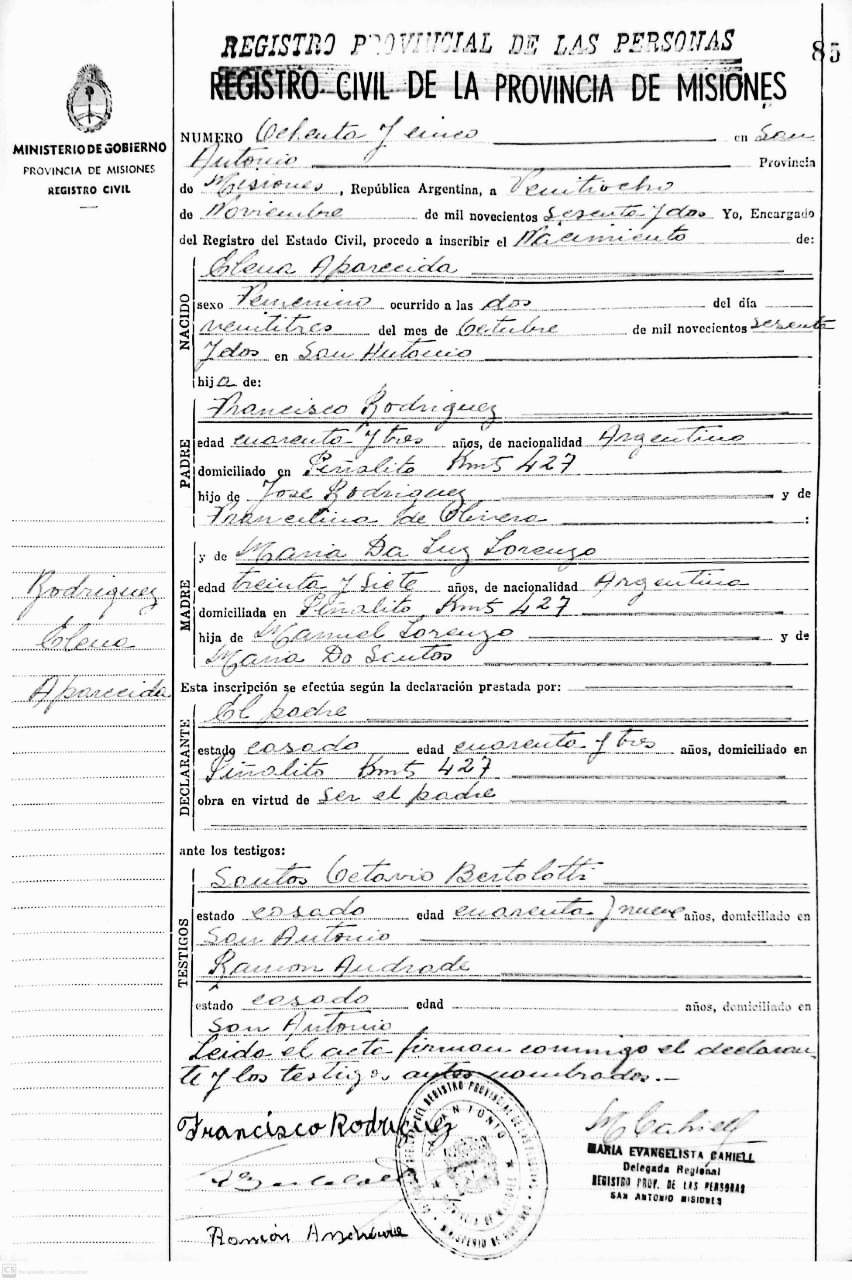 REGISTRO PROVINCIAL DE LAS PERSONAS
85
REGISTRO CIVIL DE LA PROVINCIA DE MISIONES
MINISTERIO DE GOBIERNO
PROVINCIA DE MISIONES
REGISTRO CIVIL
NUMERO Ochenta y cinco en San
Antonio Provincia
de Misiones, República Argentina, a Veintiocho
de Noviembre de mil novecientos sesenta y dos Yo, Encargado
del Registro del Estado Civil, procedo a inscribir el Nacimiento de:
NACIDO
Elena Aparecida
sexo Femenino ocurrido a las dos del día
veintitres del mes de Octubre de mil novecientos sesenta
y dos en San Antonio
hija de:
PADRE
Francisco Rodriguez
edad cuarenta y tres años, de nacionalidad Argentino
domiciliado en Piñalito Kmts 427
hijo de Jose Rodriguez y de
Francilina de Olivera :
MADRE
y de Maria Da Luz Lorenzo
edad treinta y siete años, de nacionalidad Argentina
domiciliada en Piñalito Kmts 427
hija de Manuel Lorenzo y de
Maria Do Santos
Rodriguez
Elena
Aparecida
Esta inscripción se efectúa según la declaración prestada por:
DECLARANTE
El padre
estado casado edad cuarenta y tres años, domiciliado en
Piñalito Kmts 427
obra en virtud de ser el padre
ante los testigos:
TESTIGOS
Santos Octavio Bertolotti
estado casado edad cuarenta y nueve años, domiciliado en
San Antonio
Ramon Andrade
estado casado edad años, domiciliado en
San Antonio
Leido el acta firman conmigo el declaran-
te y los testigos antes nombrados.-
Francisco Rodriguez
M Cahiell
MARIA EVANGELISTA CAHIELL
Delegada Regional
REGISTRO PROV. DE LAS PERSONAS
SAN ANTONIO MISIONES
SAN ANTONIO
Ramón Andrade
CS